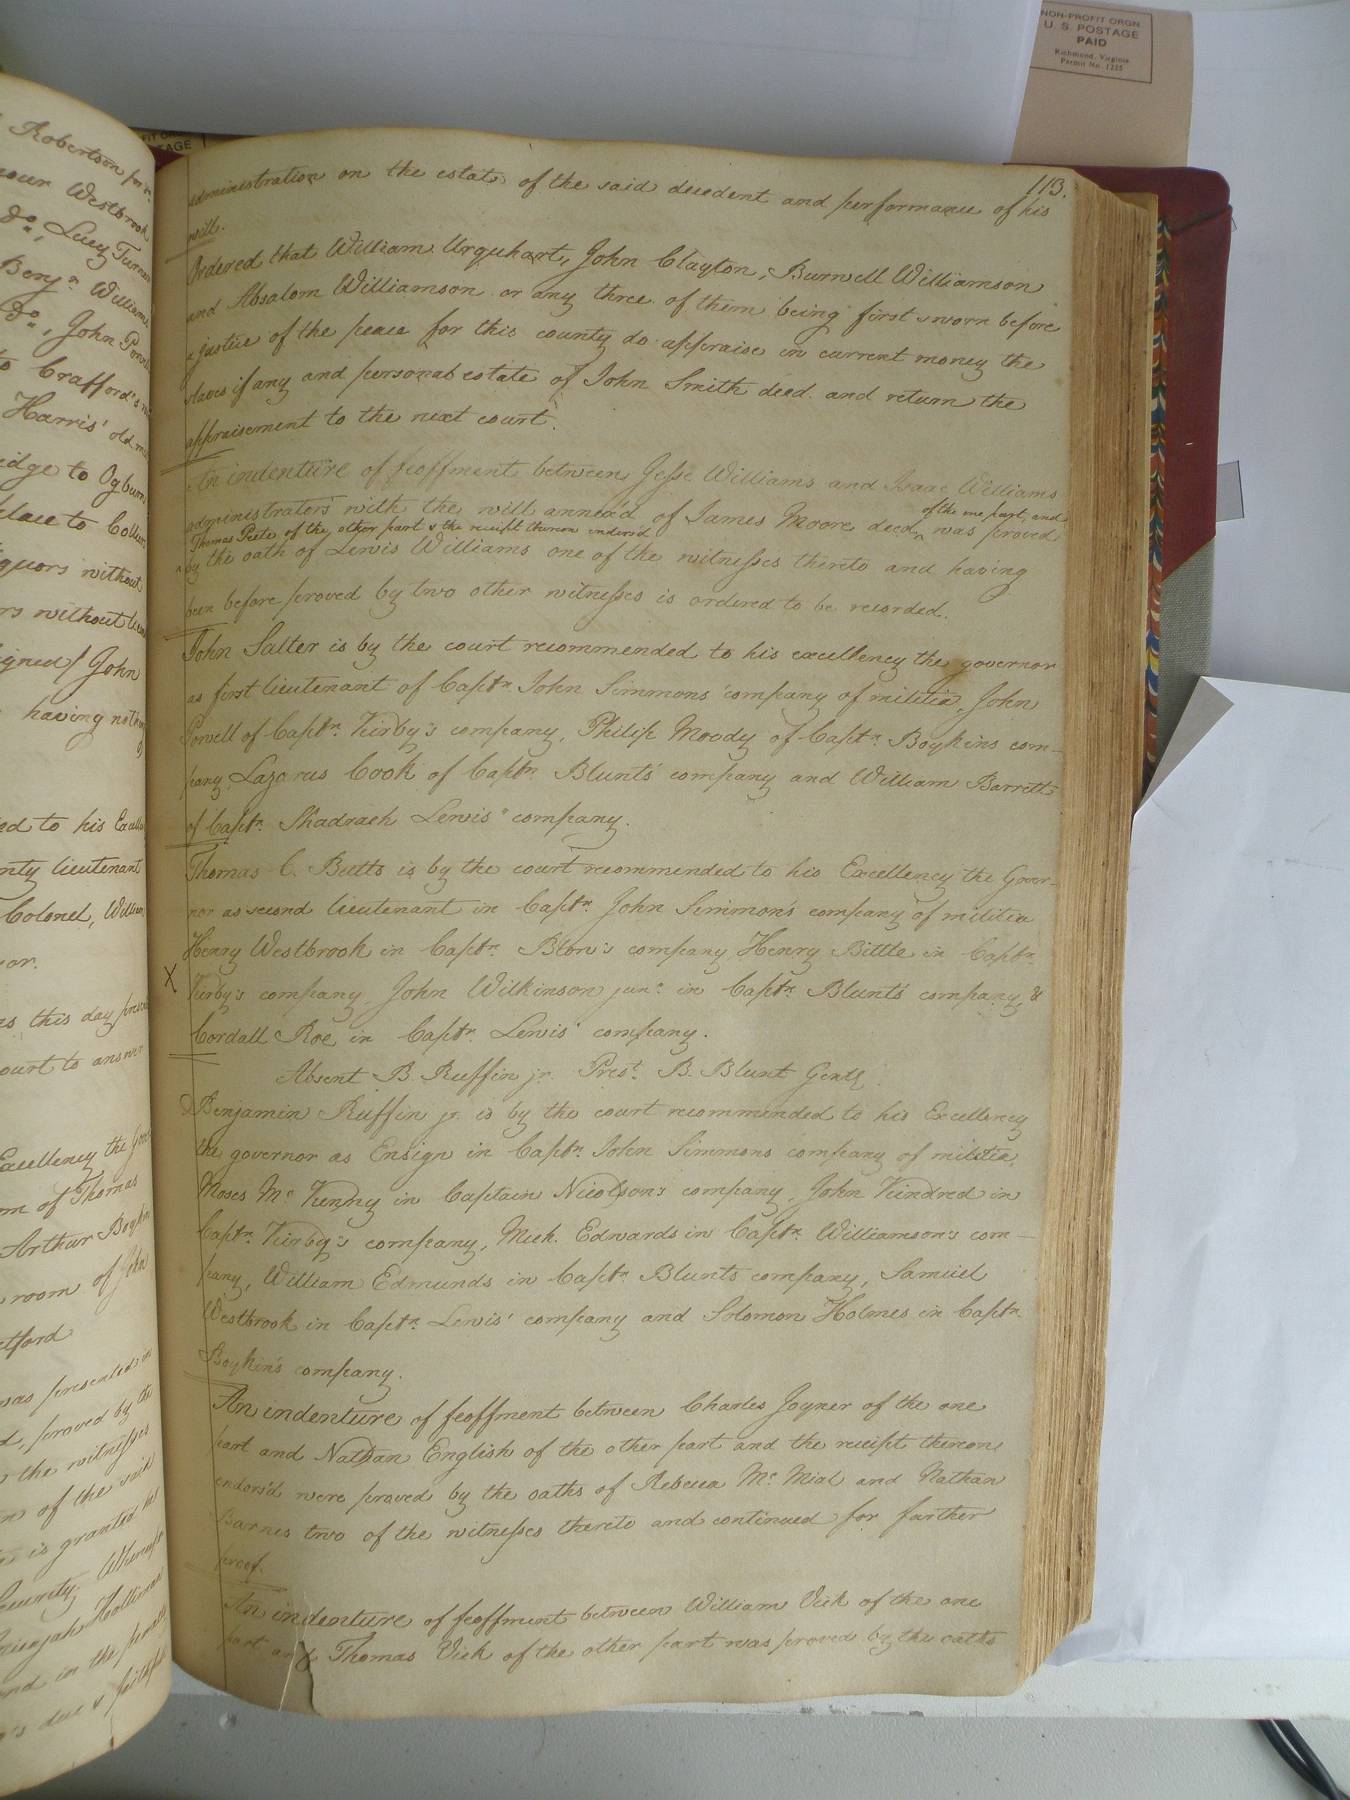 NON-PROFIT ORGN
U. S. POSTAGE
PAID
Richmond, Virginia
Permit No. 1225
Robertson for
Westbrook
do, Lucy Turner
Benjn. William
do, John
to Crafford's
Harris' old
to Ogburn
place to
liquors without
without
John
having
to his Excell
lieutenant
Colonel, William
this day
court to answer
Excellency the
of Thomas
Arthur Boykin
room of John
was presented
proved by the
the witnesses
of the said
is granted
security
and in the
due & faithful
113.
administration on the estate of the said decedent and performance of his
will.
Ordered that William Urquhart, John Clayton, Burwell Williamson
and Absalom Williamson or any three of them being first sworn before
a justice of the peace for this county do appraise in current money the
slaves if any and personal estate of John Smith deed. and return the
appraisement to the next court.
An indenture of feoffment between Jesse Williams and Isaac Williams
administrators with the will annex'd of James Moore deed, ^ of the one part, and was proved
Thomas Peete of the other part & the receipt thereon endors'd
by the oath of Lewis Williams one of the witnesses thereto and having
been before proved by two other witnesses is ordered to be recorded.
John Salter is by the court recommended to his excellency the governor
as first lieutenant of Captn. John Simmons' company of militia, John
Powell of Captn. Kirby's company, Philip Moody of Captn. Boykins com-
pany, Lazarus Cook of Captn. Blunts' company and William Barrett
of Captn. Shadrach Lewis' company.
Thomas C. Butts is by the court recommended to his Excellency the Gover-
nor as second lieutenant in Captn. John Simmon's company of militia
Henry Westbrook in Captn. Blow's company Henry Bittle in Captn.
X Kirby's company, John Wilkinson junr. in Captn. Blunts' company, &
Cordall Roe in Captn. Lewis' company.
Absent B. Ruffin jr. Prest. B. Blunt Gentl.
Benjamin Ruffin jr. is by the court recommended to his Excellency
the governor as Ensign in Captn. John Simmons company of militia,
Moses Mc Kenny in Captain Nicolson's company, John Kindred in
Captn. Kirby's company, Mich. Edwards in Captn. Williamson's com-
pany, William Edmunds in Captn. Blunts company, Samuel
Westbrook in Captn. Lewis' company and Solomon Holmes in Captn.
Boykin's company.
An indenture of feoffment between Charles Joyner of the one
part and Nathan English of the other part and the receipt thereon
endors'd were proved by the oaths of Rebecca Mc Mial and Nathan
Barnes two of the witnesses thereto and continued for farther
proof.
An indenture of feoffment between William Vick of the one
part and Thomas Vick of the other part was proved by the oaths